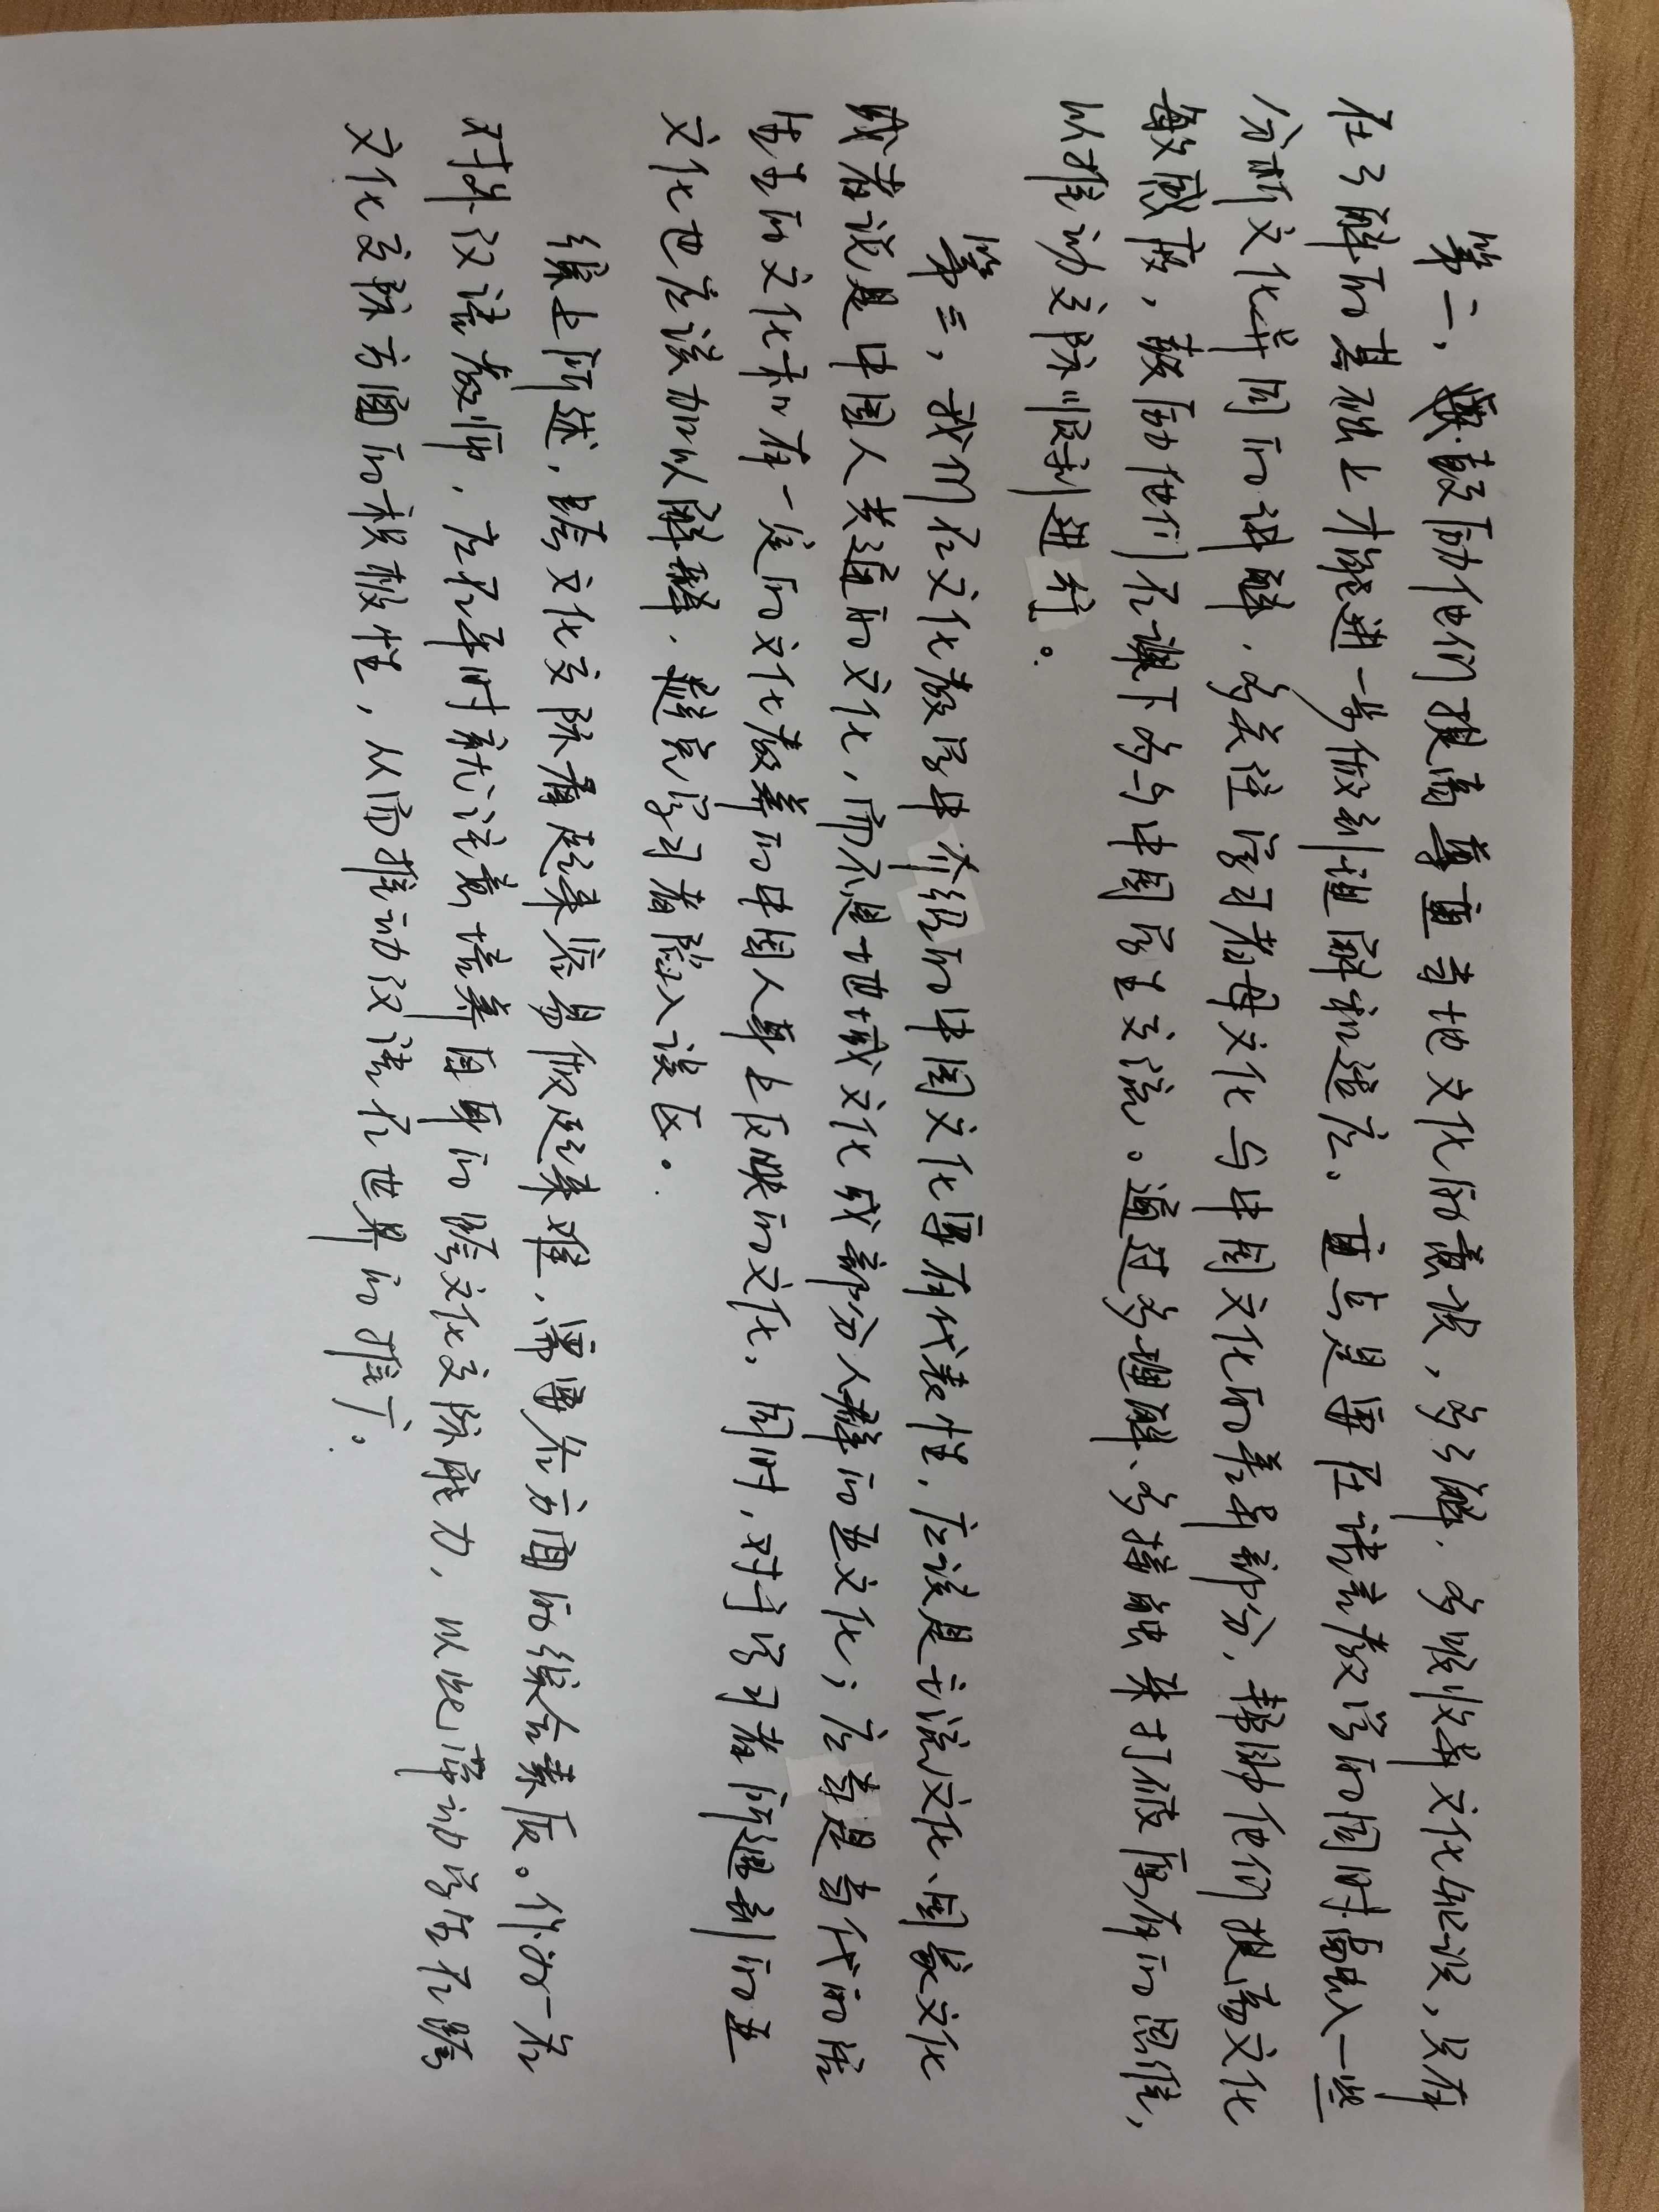 第二，鼓励他们提高尊重当地文化的意识，多了解，多吸收异文化知识，只有
在了解的基础上才能进一步做到理解和适应。重点是要在语言教学的同时融入一些
分析文化异同的讲解，多关注学习者母文化与中国文化的差异部分，帮助他们提高文化
敏感度，鼓励他们在课下多与中国学生交流。通过多理解、多接触来打破原有的思维，
以推动交际顺利进行。
第三，我们在文化教学中介绍的中国文化要有代表性，应该是主流文化、国家文化
或者说是中国人共通的文化，而不是地域文化或部分人群的亚文化；应当是当代的活
生生的文化和有一定的文化教养的中国人身上反映的文化，同时，对于学习者所遇到的亚
文化也应该加以解释，避免学习者陷入误区。
综上所述，跨文化交际看起来容易做起来难，需要各方面的综合素质。作为一名
对外汉语教师，应在平时就注意培养自身的跨文化交际能力，以此带动学生在跨
文化交际方面的积极性，从而推动汉语在世界的推广。